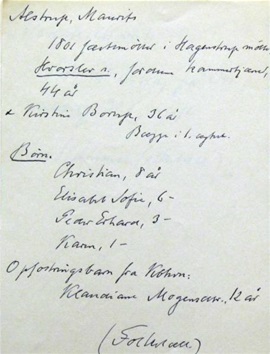 Alstrup, Maurits
1801 Fæstmøller i Hagenstrup mølle
Hvorslev s., fordum kammertjener,
44 år
& Kirstine Borup, 36 år
Begge i 1. ægtesk.
Børn.
Christian, 8 år
Elisabt Sofie, 6-
Peder Erhard, 3-
Karen, 1-
Opfostringsbarn fra Kbhvn:
Klaudiane Mogensen, 12 år
(Folketæll.)